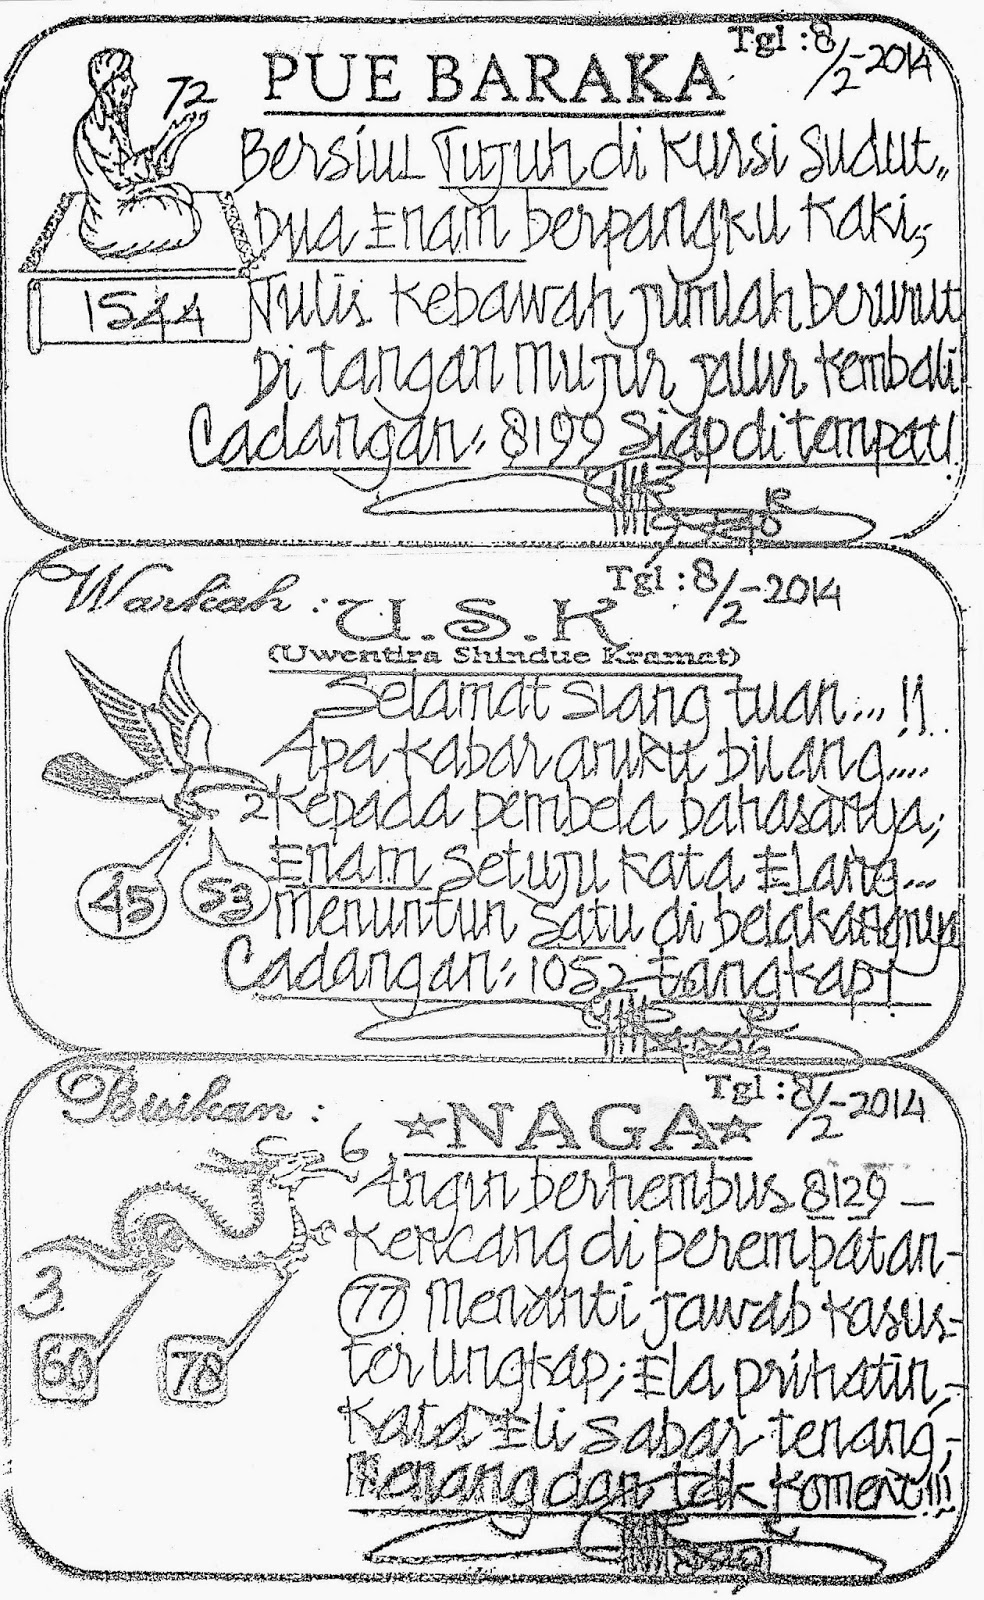 Tgl : 8/2-2014
PUE BARAKA
72
Bersiul Tujuh di kursi sudut,,
Dua Enam berpangku kaki;
1544
Tulis kebawah jumlah berurut
Di tangan mujur jalur kembali
Cadangan: 8199 Siap ditempat!
Tgl : 8/2-2014
Warkah : U.S.K
(Uwentira Shindue Kramat)
Selamat siang tuan...!!
Apa kabar anuku bilang....
2
Kepada pembela bahasanya;
45 53
Enam setuju kata Elang...
Menuntun satu di belakangnya
Cadangan: 1052 tangkap!
Tgl : 8/2-2014
Bisikan :
☆NAGA☆
6
Angin berhembus 8129 —
Kencang di perempatan-
3
77 Menanti jawab kasus-
60 78
terungkap; Ela prihatin,-
Kata Eli sabar tenang,-
Menang dan tdk koment!!!